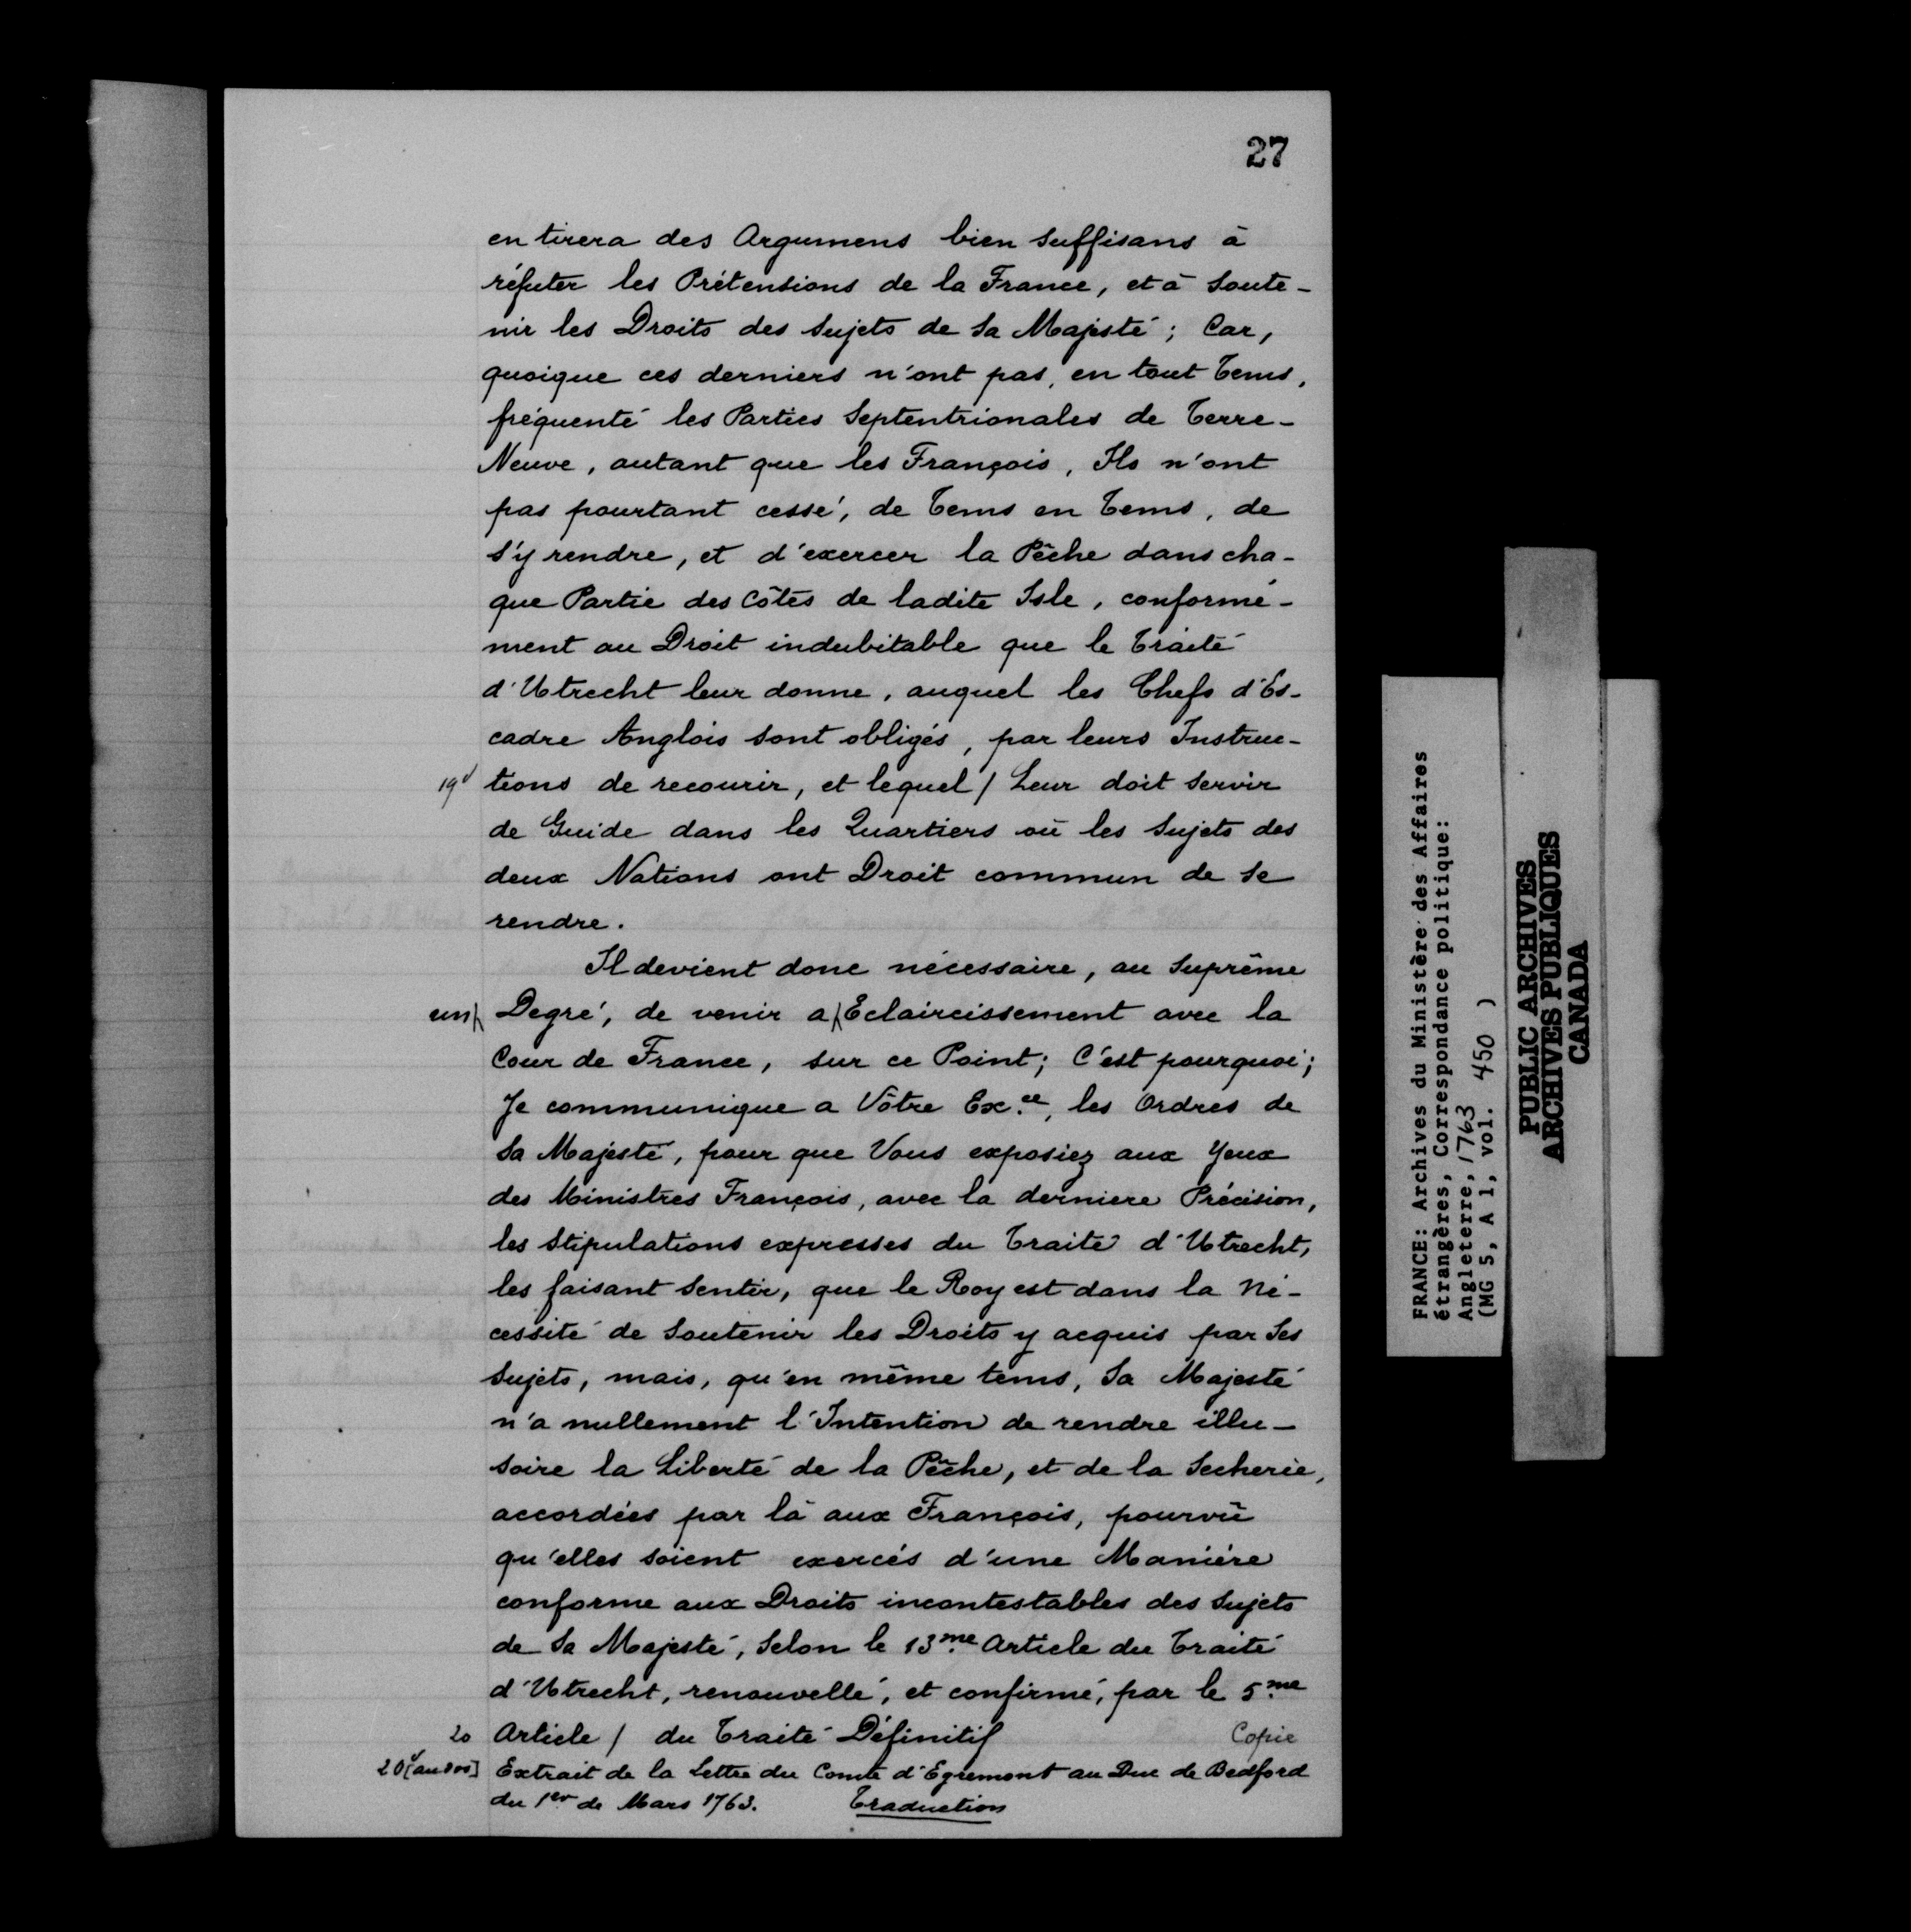 27
en tirera des Argumens bien suffisans à
réfuter les Prétensions de la France, et à soute-
nir les Droits des sujets de sa Majesté; Car,
quoique ces derniers n'ont pas, en tout Tems,
fréquenté les Parties Septentrionales de Terre-
Neuve, autant que les François, Ils n'ont
pas pourtant cessé, de Tems en Tems, de
s'y rendre, et d'exercer la Pêche dans cha-
que Partie des Côtes de ladite Isle, conformé-
ment au Droit indubitable que le Traité
d'Utrecht leur donne, auquel les Chefs d'Es-
cadre Anglois sont obligés, par leurs Instruc-
19v tions de recourir, et lequel / Leur doit servir
de Guide dans les Quartiers où les sujets des
deux Nations ont Droit commun de se
rendre.
Il devient donc nécessaire, au suprême
un/ Degré, de venir a/ Eclaircissement avec la
Cour de France, sur ce Point; C'est pourquoi;
Je communique a Vôtre Ex.ce, les Ordres de
Sa Majesté, pour que Vous exposiez aux Yeux
des Ministres François, avec la derniere Précision,
les Stipulations expresses du Traité d'Utrecht,
les faisant sentir, que le Roy est dans la Né-
cessité de soutenir les Droits y acquis par ses
sujets, mais, qu'en même tems, Sa Majesté
n'a nullement l'Intention de rendre illu-
soire la Liberté de la Pêche, et de la Secherie,
accordées par là aux François, pourvû
qu'elles soient exercés d'une Maniére
conforme aux Droits incontestables des sujets
de Sa Majesté, Selon le 13.me Article du Traité
d'Utrecht, renouvellé, et confirmé, par le 5.me
20 Article / du Traité Définitif Copie
20v [au dos] Extrait de la Lettre du Comte d'Egremont au Duc de Bedford
du 1er de Mars 1763. Traduction
FRANCE: Archives du Ministère des Affaires
étrangères, Correspondance politique:
Angleterre, 1763
(MG 5, A 1, vol. 450 )
PUBLIC ARCHIVES
ARCHIVES PUBLIQUES
CANADA